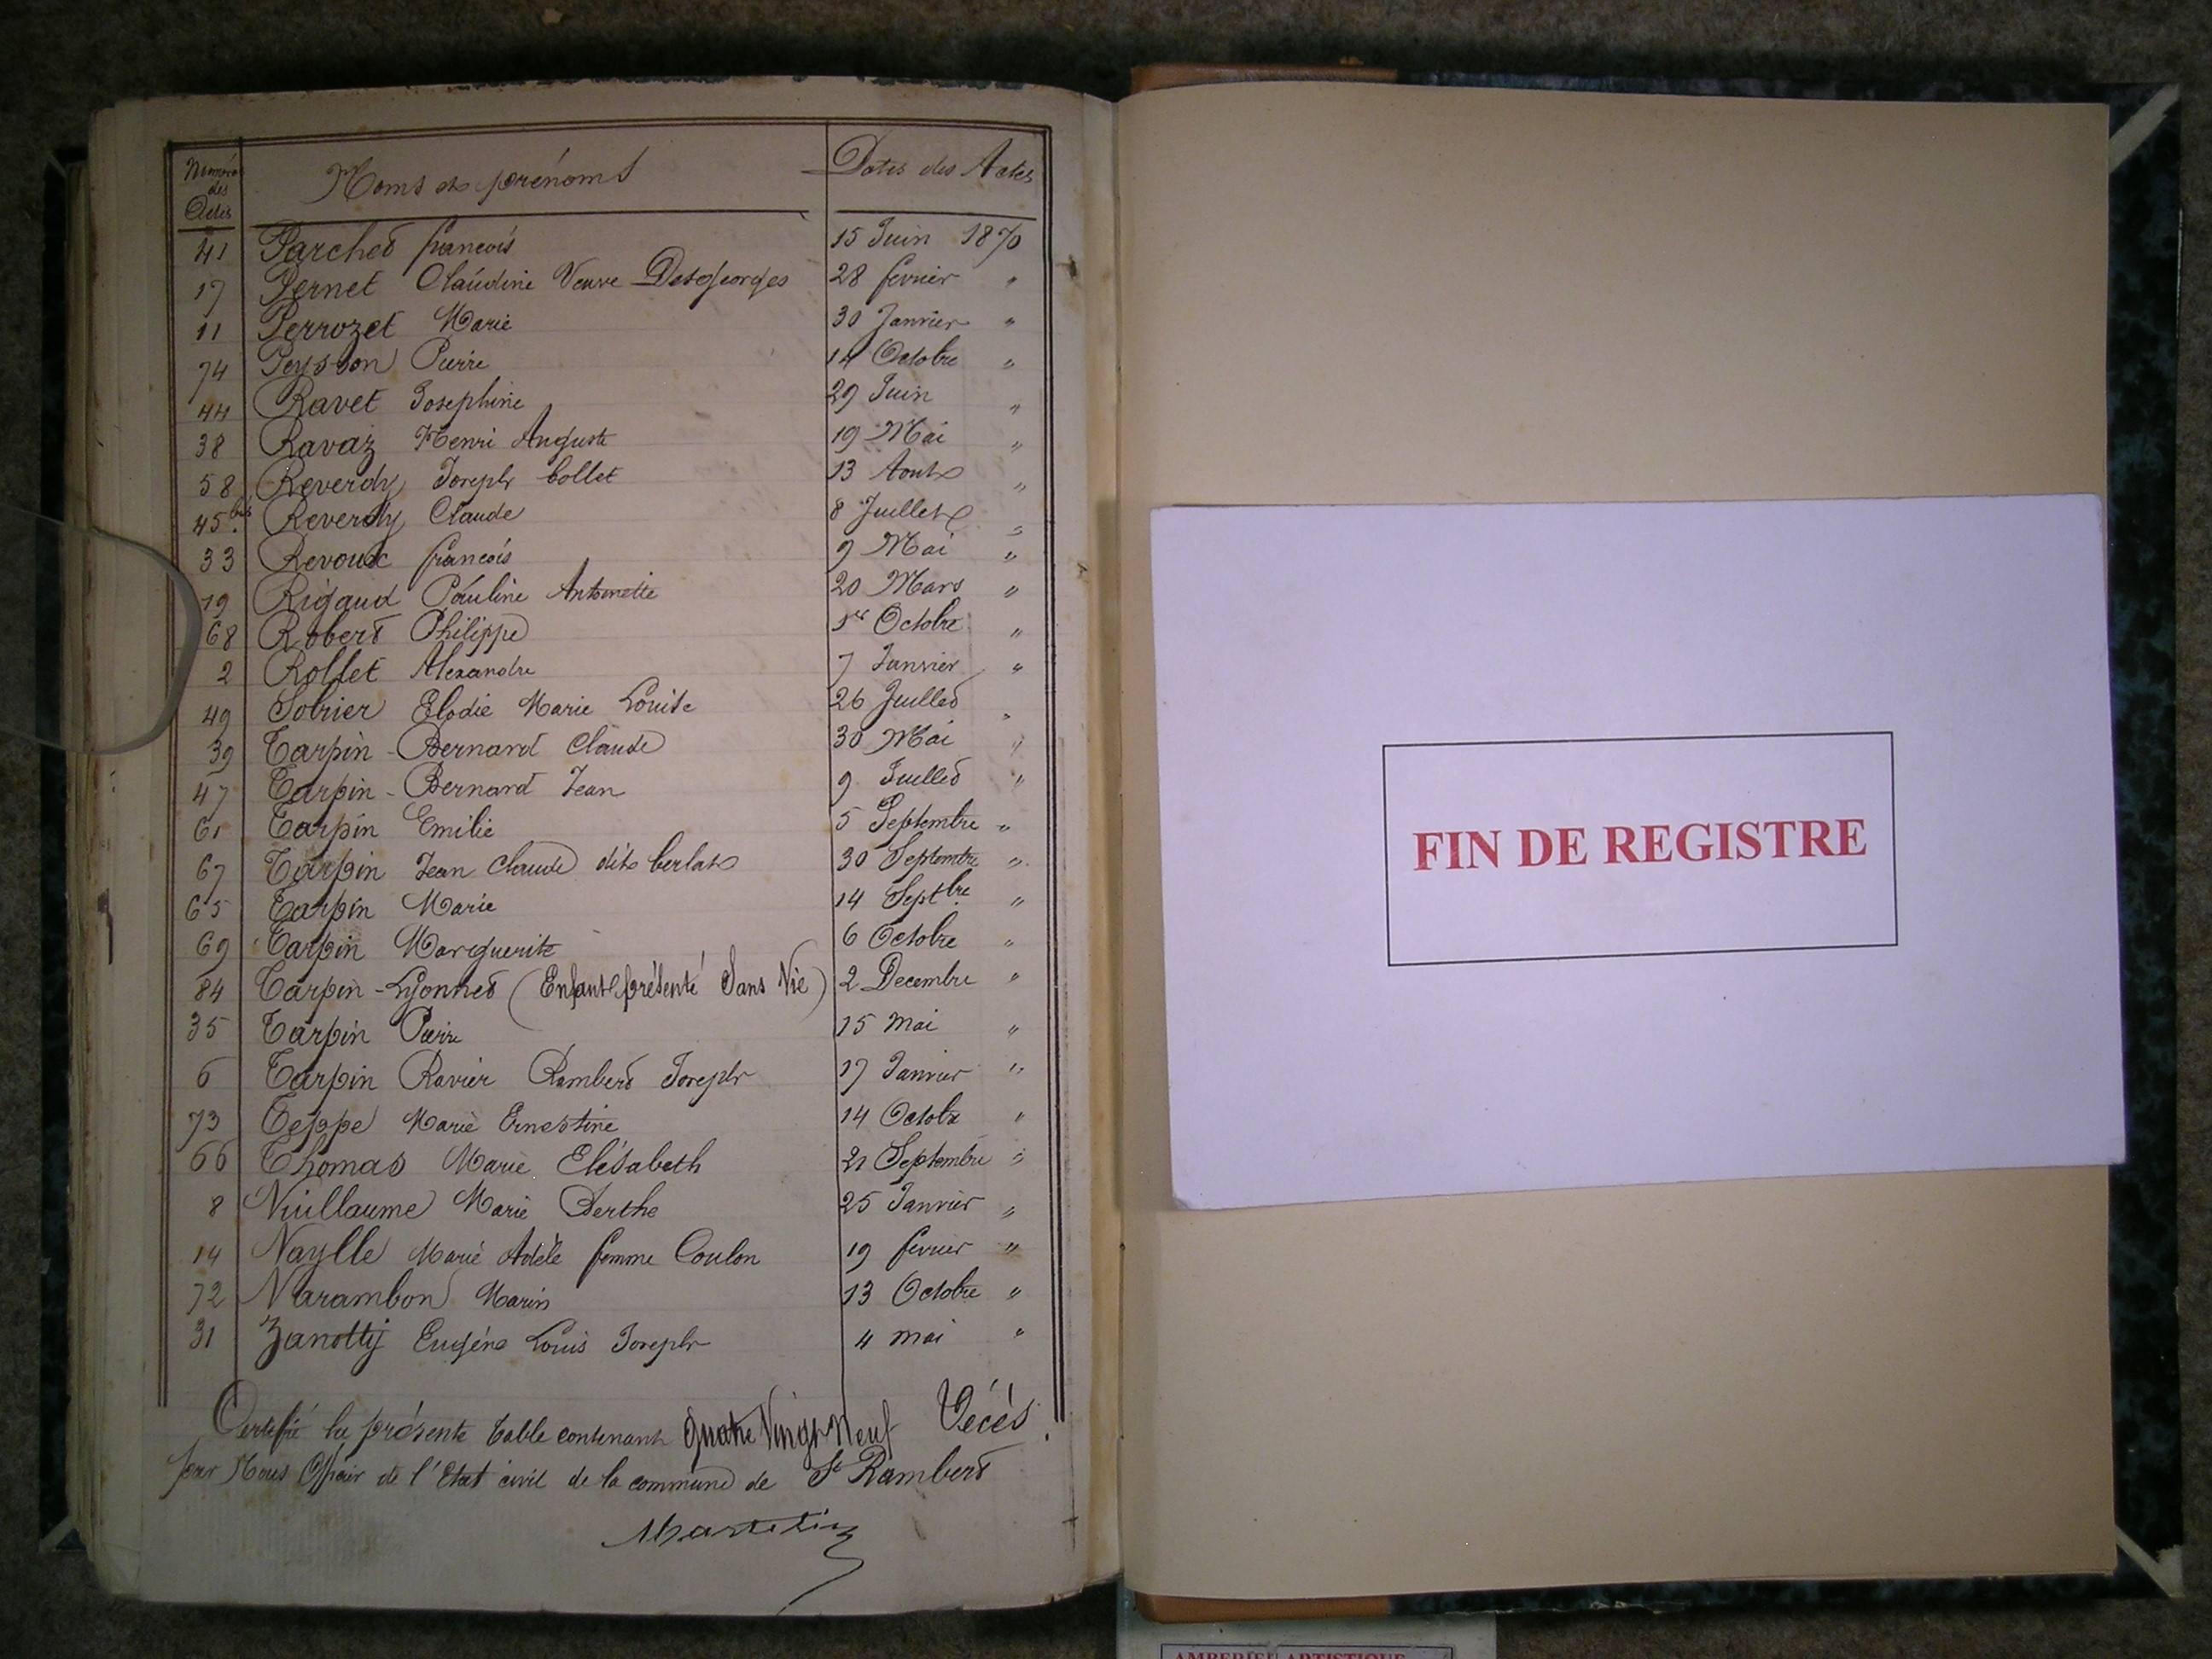 Numéros
des
Actes
Noms et prénoms
Dates des Actes
41 Parchet francois 15 Juin 1870
17 Pernet Claudine Veuve Desgeorges 28 fevrier "
11 Perrozet Marie 30 Janvier "
74 Peysson Pierre 14 Octobre "
44 Ravet Josephine 29 Juin "
38 Ravaz Henri Auguste 19 Mai "
58 Reverdy Joseph Collet 13 Aout "
45 bis Reverdy Claude 8 Juillet "
33 Revoux francois 9 Mai "
19 Rigaud Pauline Antoinette 20 Mars "
68 Robert Philippe 1er Octobre "
2 Rollet Alexandre 7 Janvier "
49 Sobrier Elodie Marie Louise 26 Juillet "
39 Tarpin-Bernard Claude 30 Mai "
47 Tarpin-Bernard Jean 9 Juillet "
61 Tarpin Emilie 5 Septembre "
67 Tarpin Jean Claude dit berlat 30 Septembre "
65 Tarpin Marie 14 Septbre "
69 Tarpin Marguerite 6 Octobre "
84 Tarpin-Lyonnet (Enfant présenté Sans Vie) 2 Decembre "
35 Tarpin Pierre 15 mai "
6 Tarpin Ravier Rambert Joseph 17 Janvier "
73 Teppe Marie Ernestine 14 Octobre "
66 Thomas Marie Elésabeth 21 Septembre "
8 Vuillaume Marie Berthe 25 Janvier "
14 Naylle Marie Adèle femme Coulon 19 fevrier "
72 Varambon Marin 13 Octobre "
31 Zanotty Eugéne Louis Joseph 4 mai "
Certifié la présente table contenant Quatre Vingt Neuf Décés.
par Nous Officier de l'Etat civil de la commune de St Rambert
FIN DE REGISTRE
AMBERIEU ARTISTIQUE